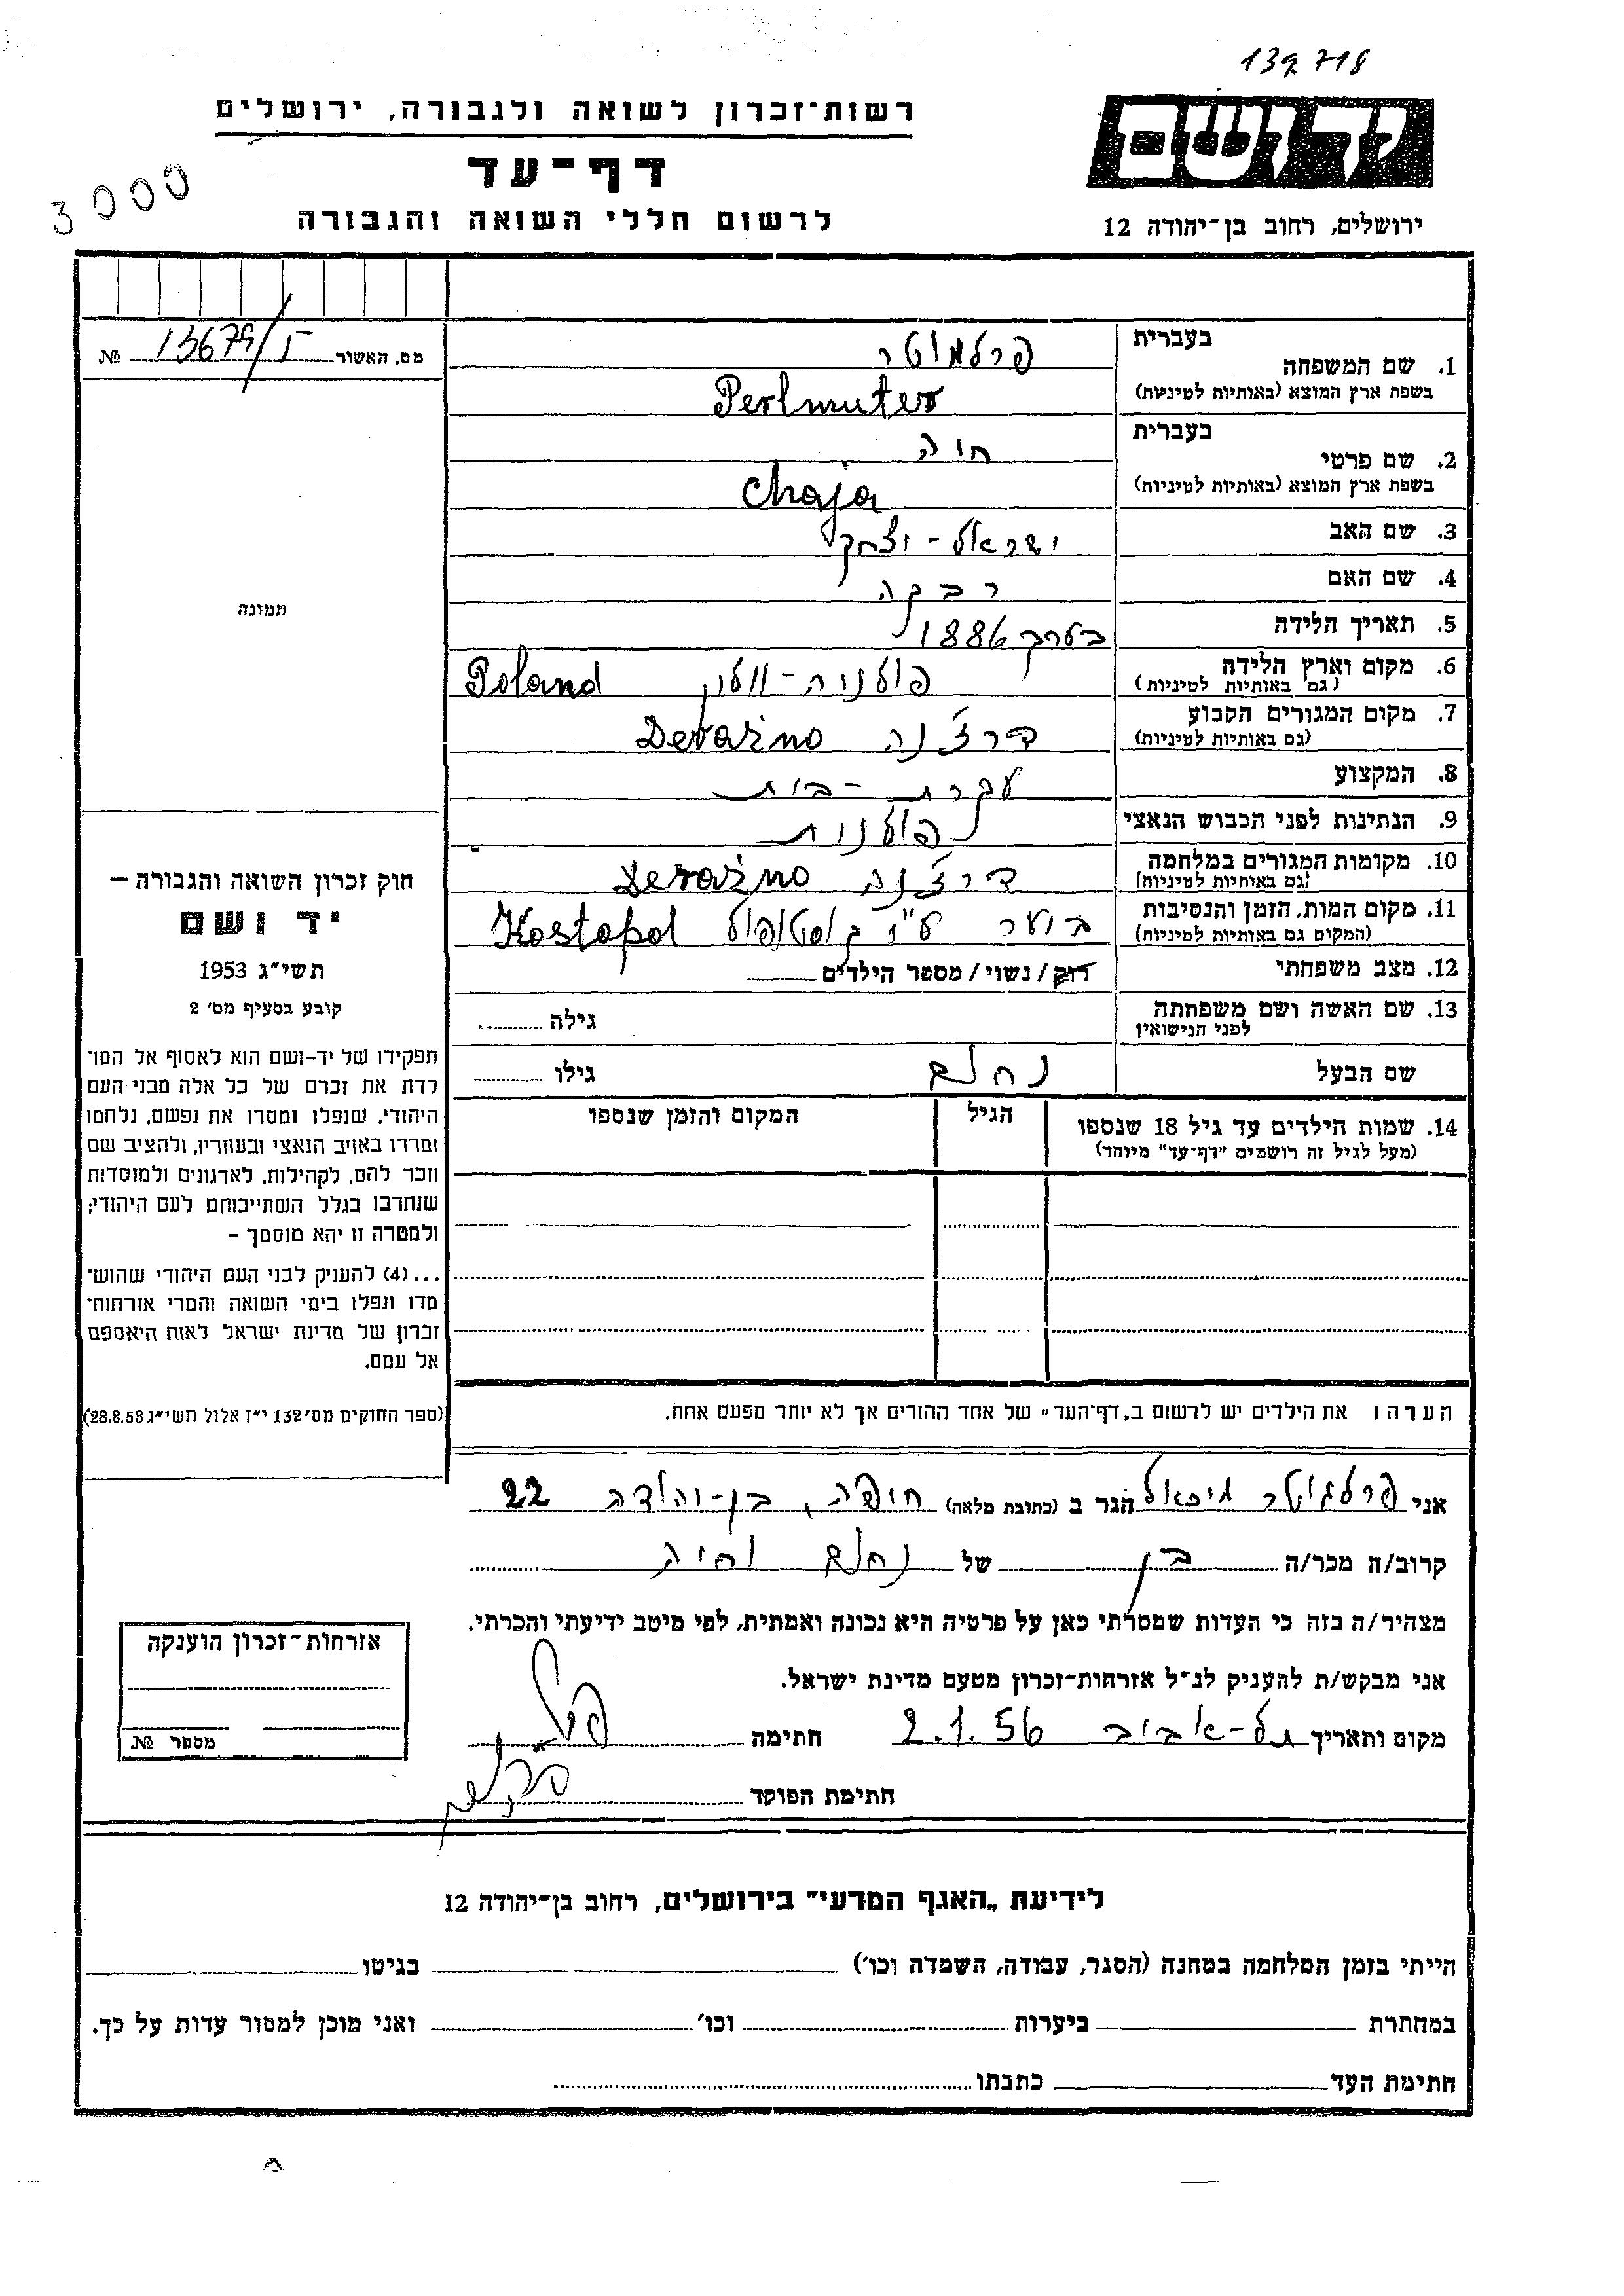 139.718
רשות־זכרון לשואה ולגבורה, ירושלים
דף־עד
לרשום חללי השואה והגבורה
3000
ידושם
ירושלים, רחוב בן־יהודה 12
מס. האשור 13679/ № 
בעברית
1. שם המשפחה פרלמוטר
בשפת ארץ המוצא (באותיות לטיניות) Perlmuter
בעברית
2. שם פרטי חיה
בשפת ארץ המוצא (באותיות לטיניות) Chaja
3. שם האב ישראל - יצחק
4. שם האם רבקה
5. תאריך הלידה בערך 1886
6. מקום וארץ הלידה פולניה - ווולין Poland
(גם באותיות לטיניות)
7. מקום המגורים הקבוע דרז'נה Deražno
(גם באותיות לטיניות)
8. המקצוע עקרת - בית
9. הנתינות לפני הכבוש הנאצי פולנית
10. מקומות המגורים במלחמה דרז'נה Deražno
(גם באותיות לטיניות)
11. מקום המות, הזמן והנסיבות ביער ע"י קוסטופול Kostopol
(המקום גם באותיות לטיניות)
12. מצב משפחתי רוק/נשוי/מספר הילדים
13. שם האשה ושם משפחתה גילה
לפני הנישואין
שם הבעל נחום גילו
14. שמות הילדים עד גיל 18 שנספו הגיל המקום והזמן שנספו
(מעל לגיל זה רושמים "דף־עד" מיוחד)
תמונה
חוק זכרון השואה והגבורה —
יד ושם
תשי"ג 1953
קובע בסעיף מס' 2
תפקידו של יד-ושם הוא לאסוף אל המו־
לדת את זכרם של כל אלה מבני העם
היהודי, שנפלו ומסרו את נפשם, נלחמו
ומרדו באויב הנאצי ובעוזריו, ולהציב שם
וזכר להם, לקהילות, לארגונים ולמוסדות
שנחרבו בגלל השתייכותם לעם היהודי;
ולמטרה זו יהא מוסמך -
...(4) להעניק לבני העם היהודי שהוש־
מדו ונפלו בימי השואה והמרי אזרחות־
זכרון של מדינת ישראל לאות היאספם
אל עמם.
(ספר החוקים מס' 132 י"ז אלול תשי"ג 28.8.53)
הערה: את הילדים יש לרשום ב„דף־העד" של אחד ההורים אך לא יותר מפעם אחת.
אני פרלמוטר מיכאל הגר ב (כתובת מלאה) חיפה, בן-יהודה 22
קרוב/ה מכר/ה בן של נחום וחיה
מצהיר/ה בזה כי העדות שמסרתי כאן על פרטיה היא נכונה ואמתית, לפי מיטב ידיעתי והכרתי.
אני מבקש/ת להעניק לנ"ל אזרחות־זכרון מטעם מדינת ישראל.
מקום ותאריך תל-אביב 2.1.56 חתימה
חתימת הפוקד
אזרחות־זכרון הוענקה
מספר №
לידיעת „האגף המדעי" בירושלים, רחוב בן־יהודה 12
הייתי בזמן המלחמה במחנה (הסגר, עבודה, השמדה וכו') בגיטו
במחתרת ביערות וכו' ואני מוכן למסור עדות על כך.
חתימת העד כתבתו